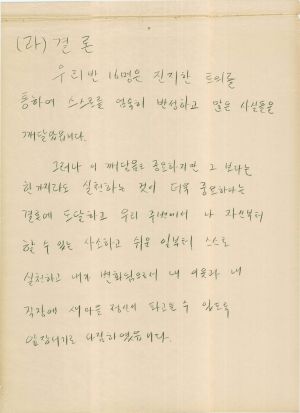 (라) 결론
우리반 16명은 진지한 토의를
통하여 스스로를 엄숙히 반성하고 많은 사실들을
깨달았읍니다.
그러나 이 깨달음도 중요하지만 그 보다는
한가지라도 실천하는 것이 더욱 중요하다는
결론에 도달하고 우리 주변에서 나 자신부터
할 수 있는 사소하고 쉬운 일부터 스스로
실천하고 내가 변화됨으로서 내 이웃과 내
직장에 새마을 정신이 파고들 수 있도록
앞장서기로 다짐하였읍니다.